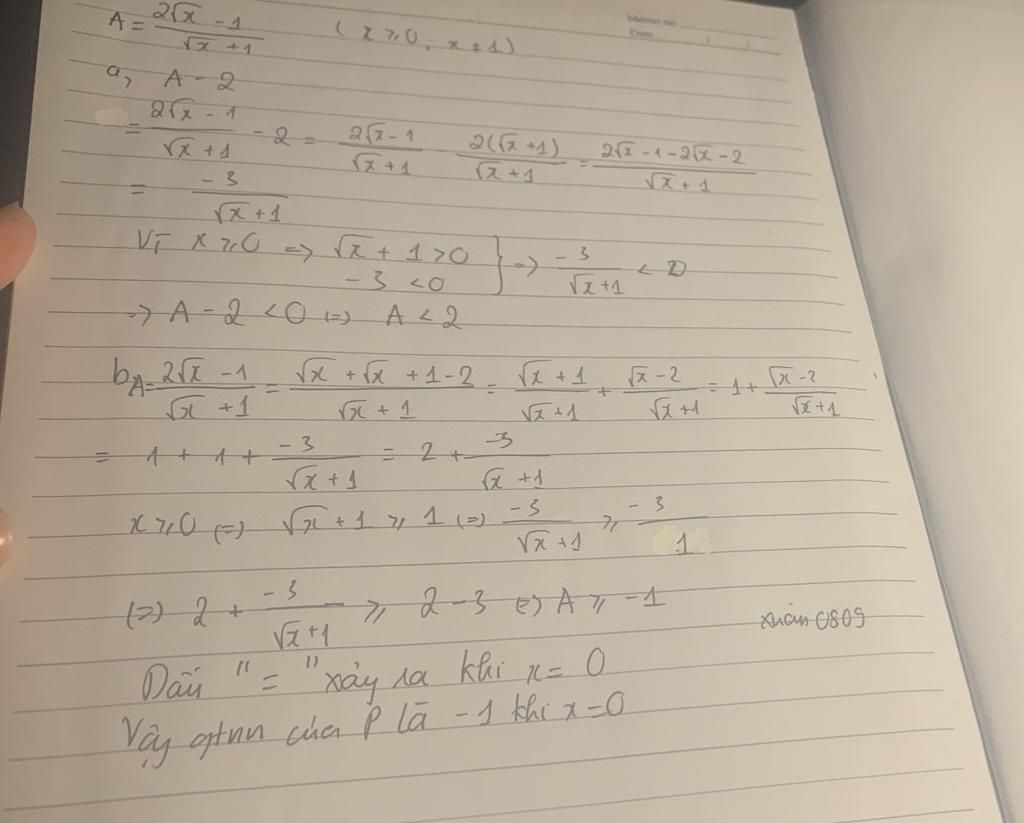 A = (2√x - 1)/(√x + 1) (x ≥ 0; x ≠ 1)
a, A - 2
= (2√x - 1)/(√x + 1) - 2 = (2√x - 1)/(√x + 1) (2(√x + 1))/(√x + 1) = (2√x - 1 - 2√x - 2)/(√x + 1)
= (-3)/(√x + 1)
Vì x ≥ 0 => √x + 1 > 0 } => (-3)/(√x + 1) < 0
- 3 < 0
=> A - 2 < 0 (=) A < 2
b, A = (2√x - 1)/(√x + 1) = (√x + √x + 1 - 2)/(√x + 1) = (√x + 1)/(√x + 1) + (√x - 2)/(√x + 1) = 1 + (√x - 2)/(√x + 1)
= 1 + 1 + (-3)/(√x + 1) = 2 + (-3)/(√x + 1)
x ≥ 0 (=) √x + 1 ≥ 1 (=) (-3)/(√x + 1) ≥ (-3)/1
(=) 2 + (-3)/(√x + 1) ≥ 2 - 3 (=) A ≥ -1
xuân0809
Dấu "=" xảy ra khi x = 0
Vậy gtnn của P là - 1 khi x = 0